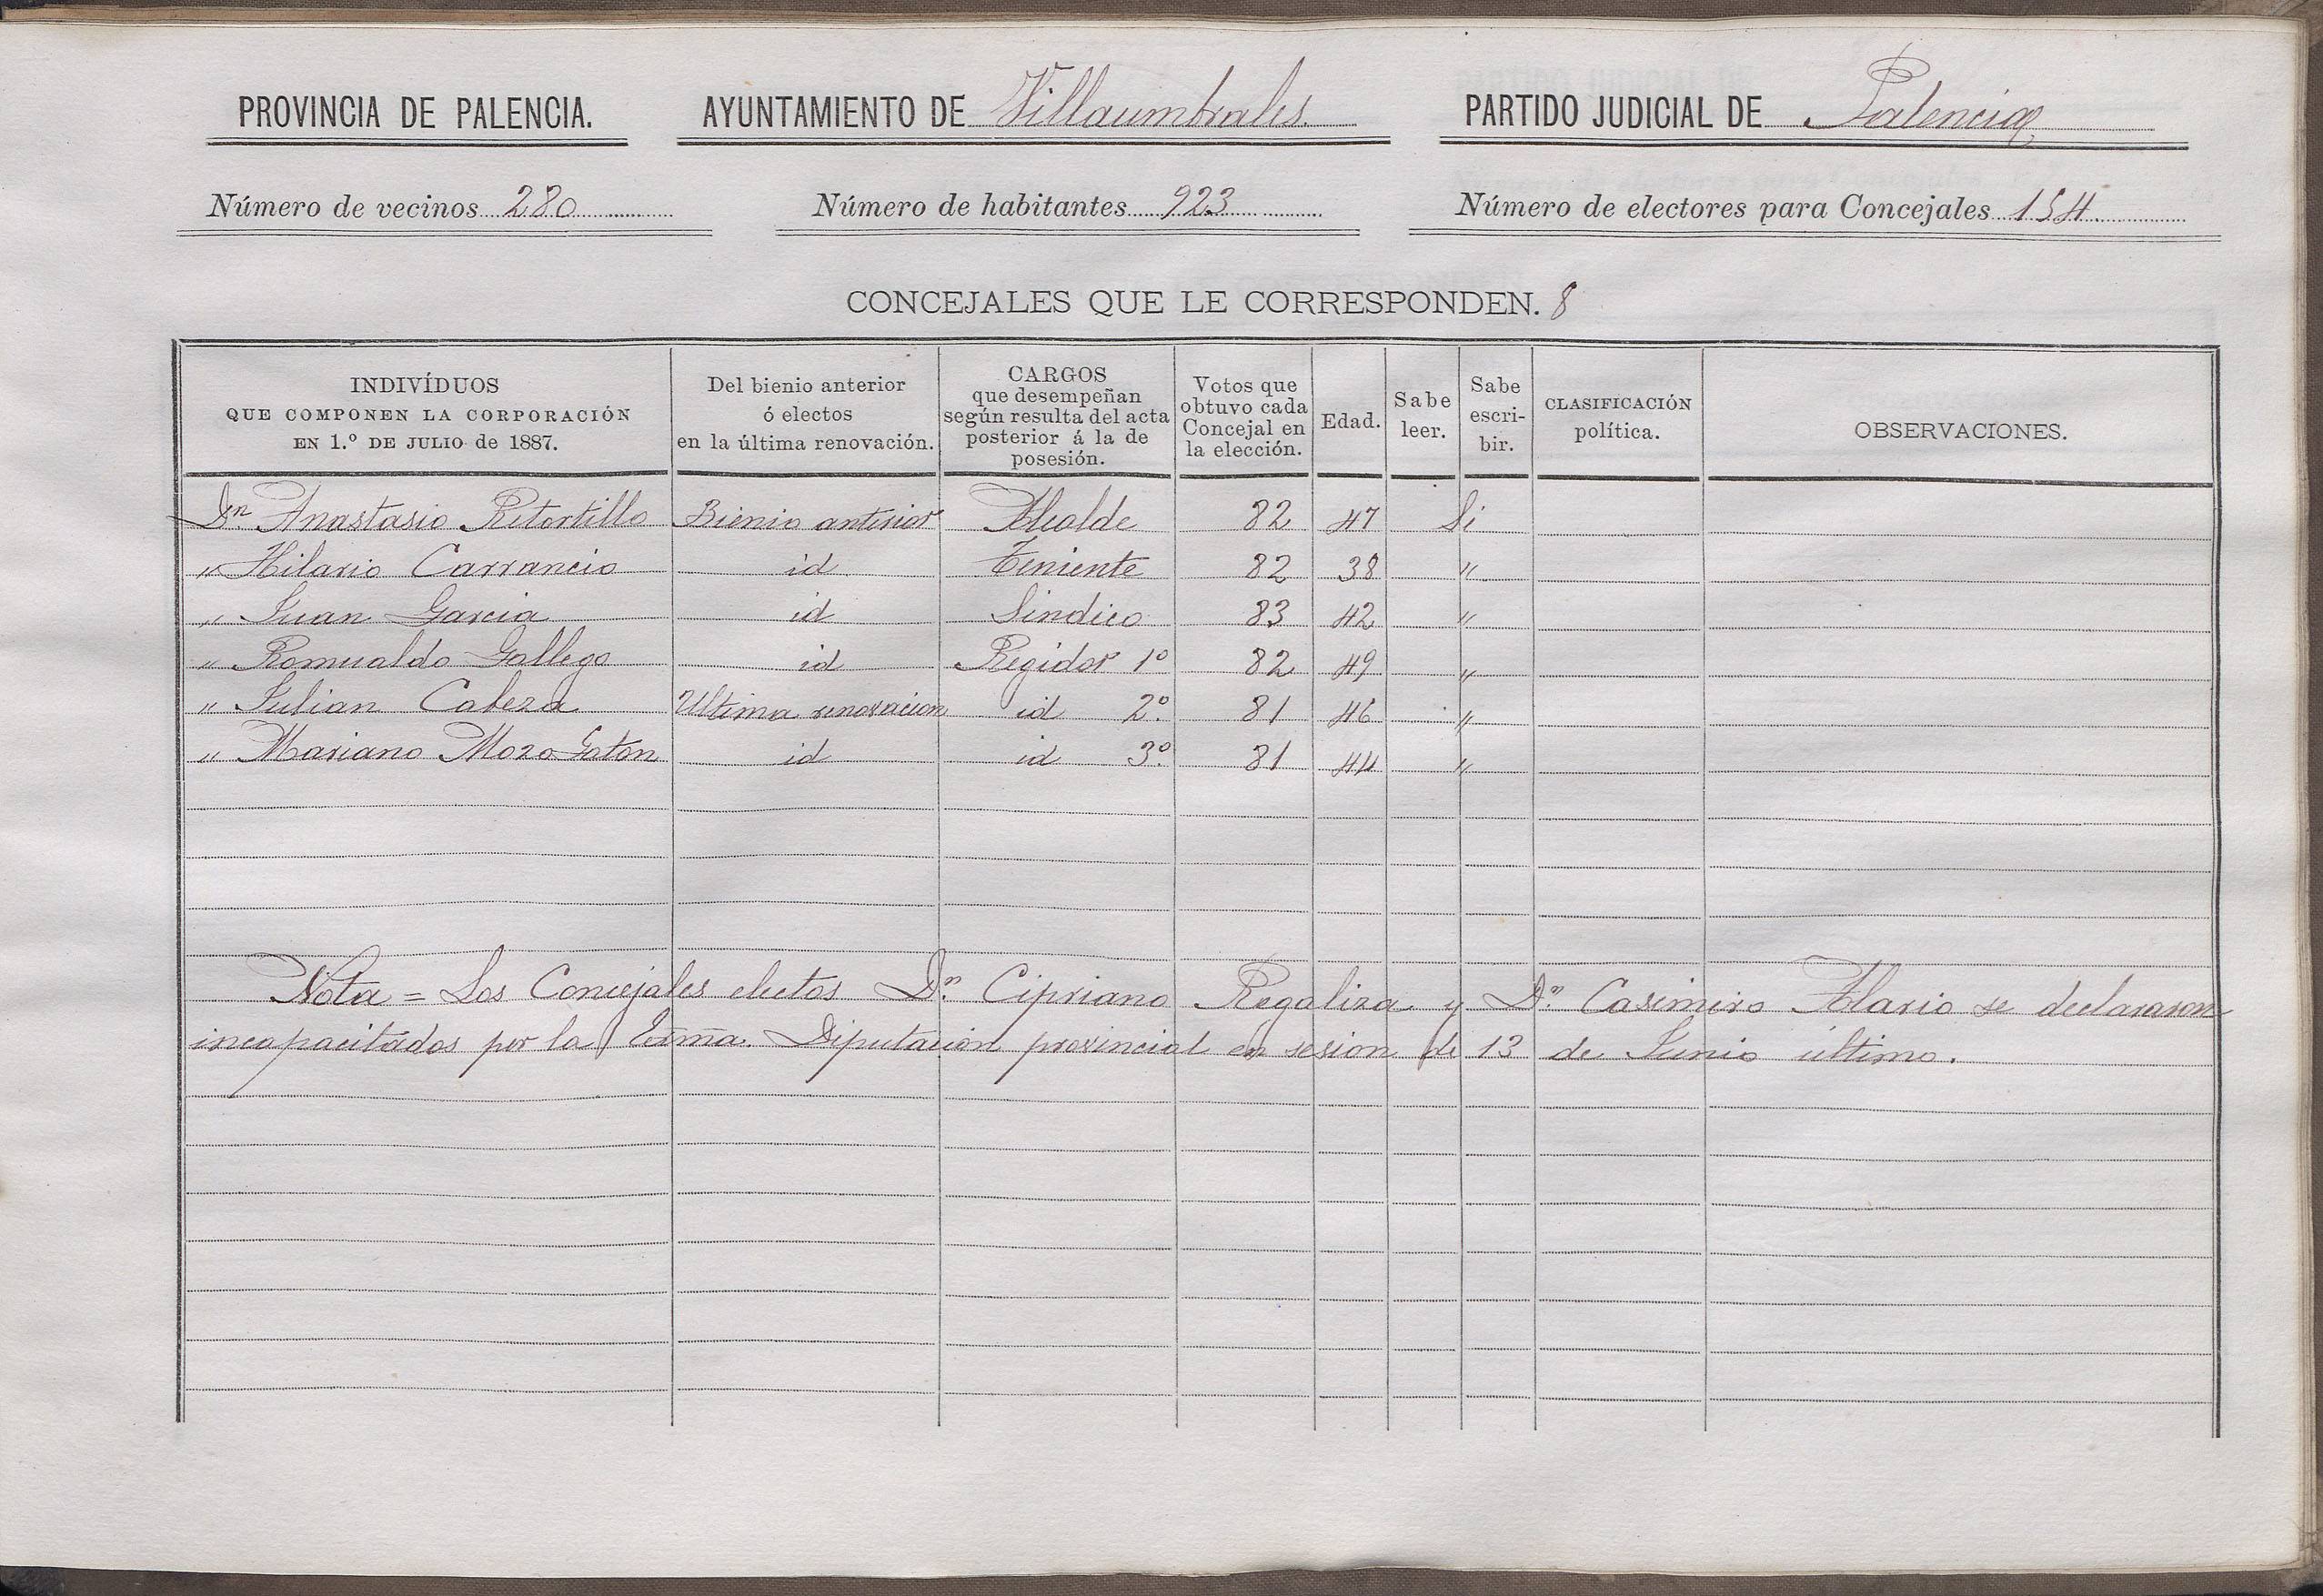 PROVINCIA DE PALENCIA. AYUNTAMIENTO DE Villaumbrales. PARTIDO JUDICIAL DE Palencia
Número de vecinos 280 Número de habitantes 923 Número de electores para Concejales 154
CONCEJALES QUE LE CORRESPONDEN. 8
INDIVÍDUOS
QUE COMPONEN LA CORPORACIÓN
EN 1.º DE JULIO de 1887.
Del bienio anterior
ó electos
en la última renovación.
CARGOS
que desempeñan
según resulta del acta
posterior á la de
posesión.
Votos que
obtuvo cada
Concejal en
la elección.
Edad.
Sabe
leer.
Sabe
escri-
bir.
CLASIFICACIÓN
política.
OBSERVACIONES.
Dn. Anastasio Retortillo Bienio anterior Alcalde 82 47 Si
" Hilario Carrancio id Teniente 82 38 "
" Juan Garcia id Sindico 83 42 "
" Romualdo Gallego id Regidor 1º 82 49 "
" Julian Cabeza Ultima renovacion id 2º. 81 46 "
" Mariano Mozo Gaton id id 3º. 81 44 "
Nota = Los Concejales electos Dn. Cipriano Regaliza y Dn. Casimiro Alario se declararon
incapacitados por la Exma. Diputacion provincial en sesion de 13 de Junio último.